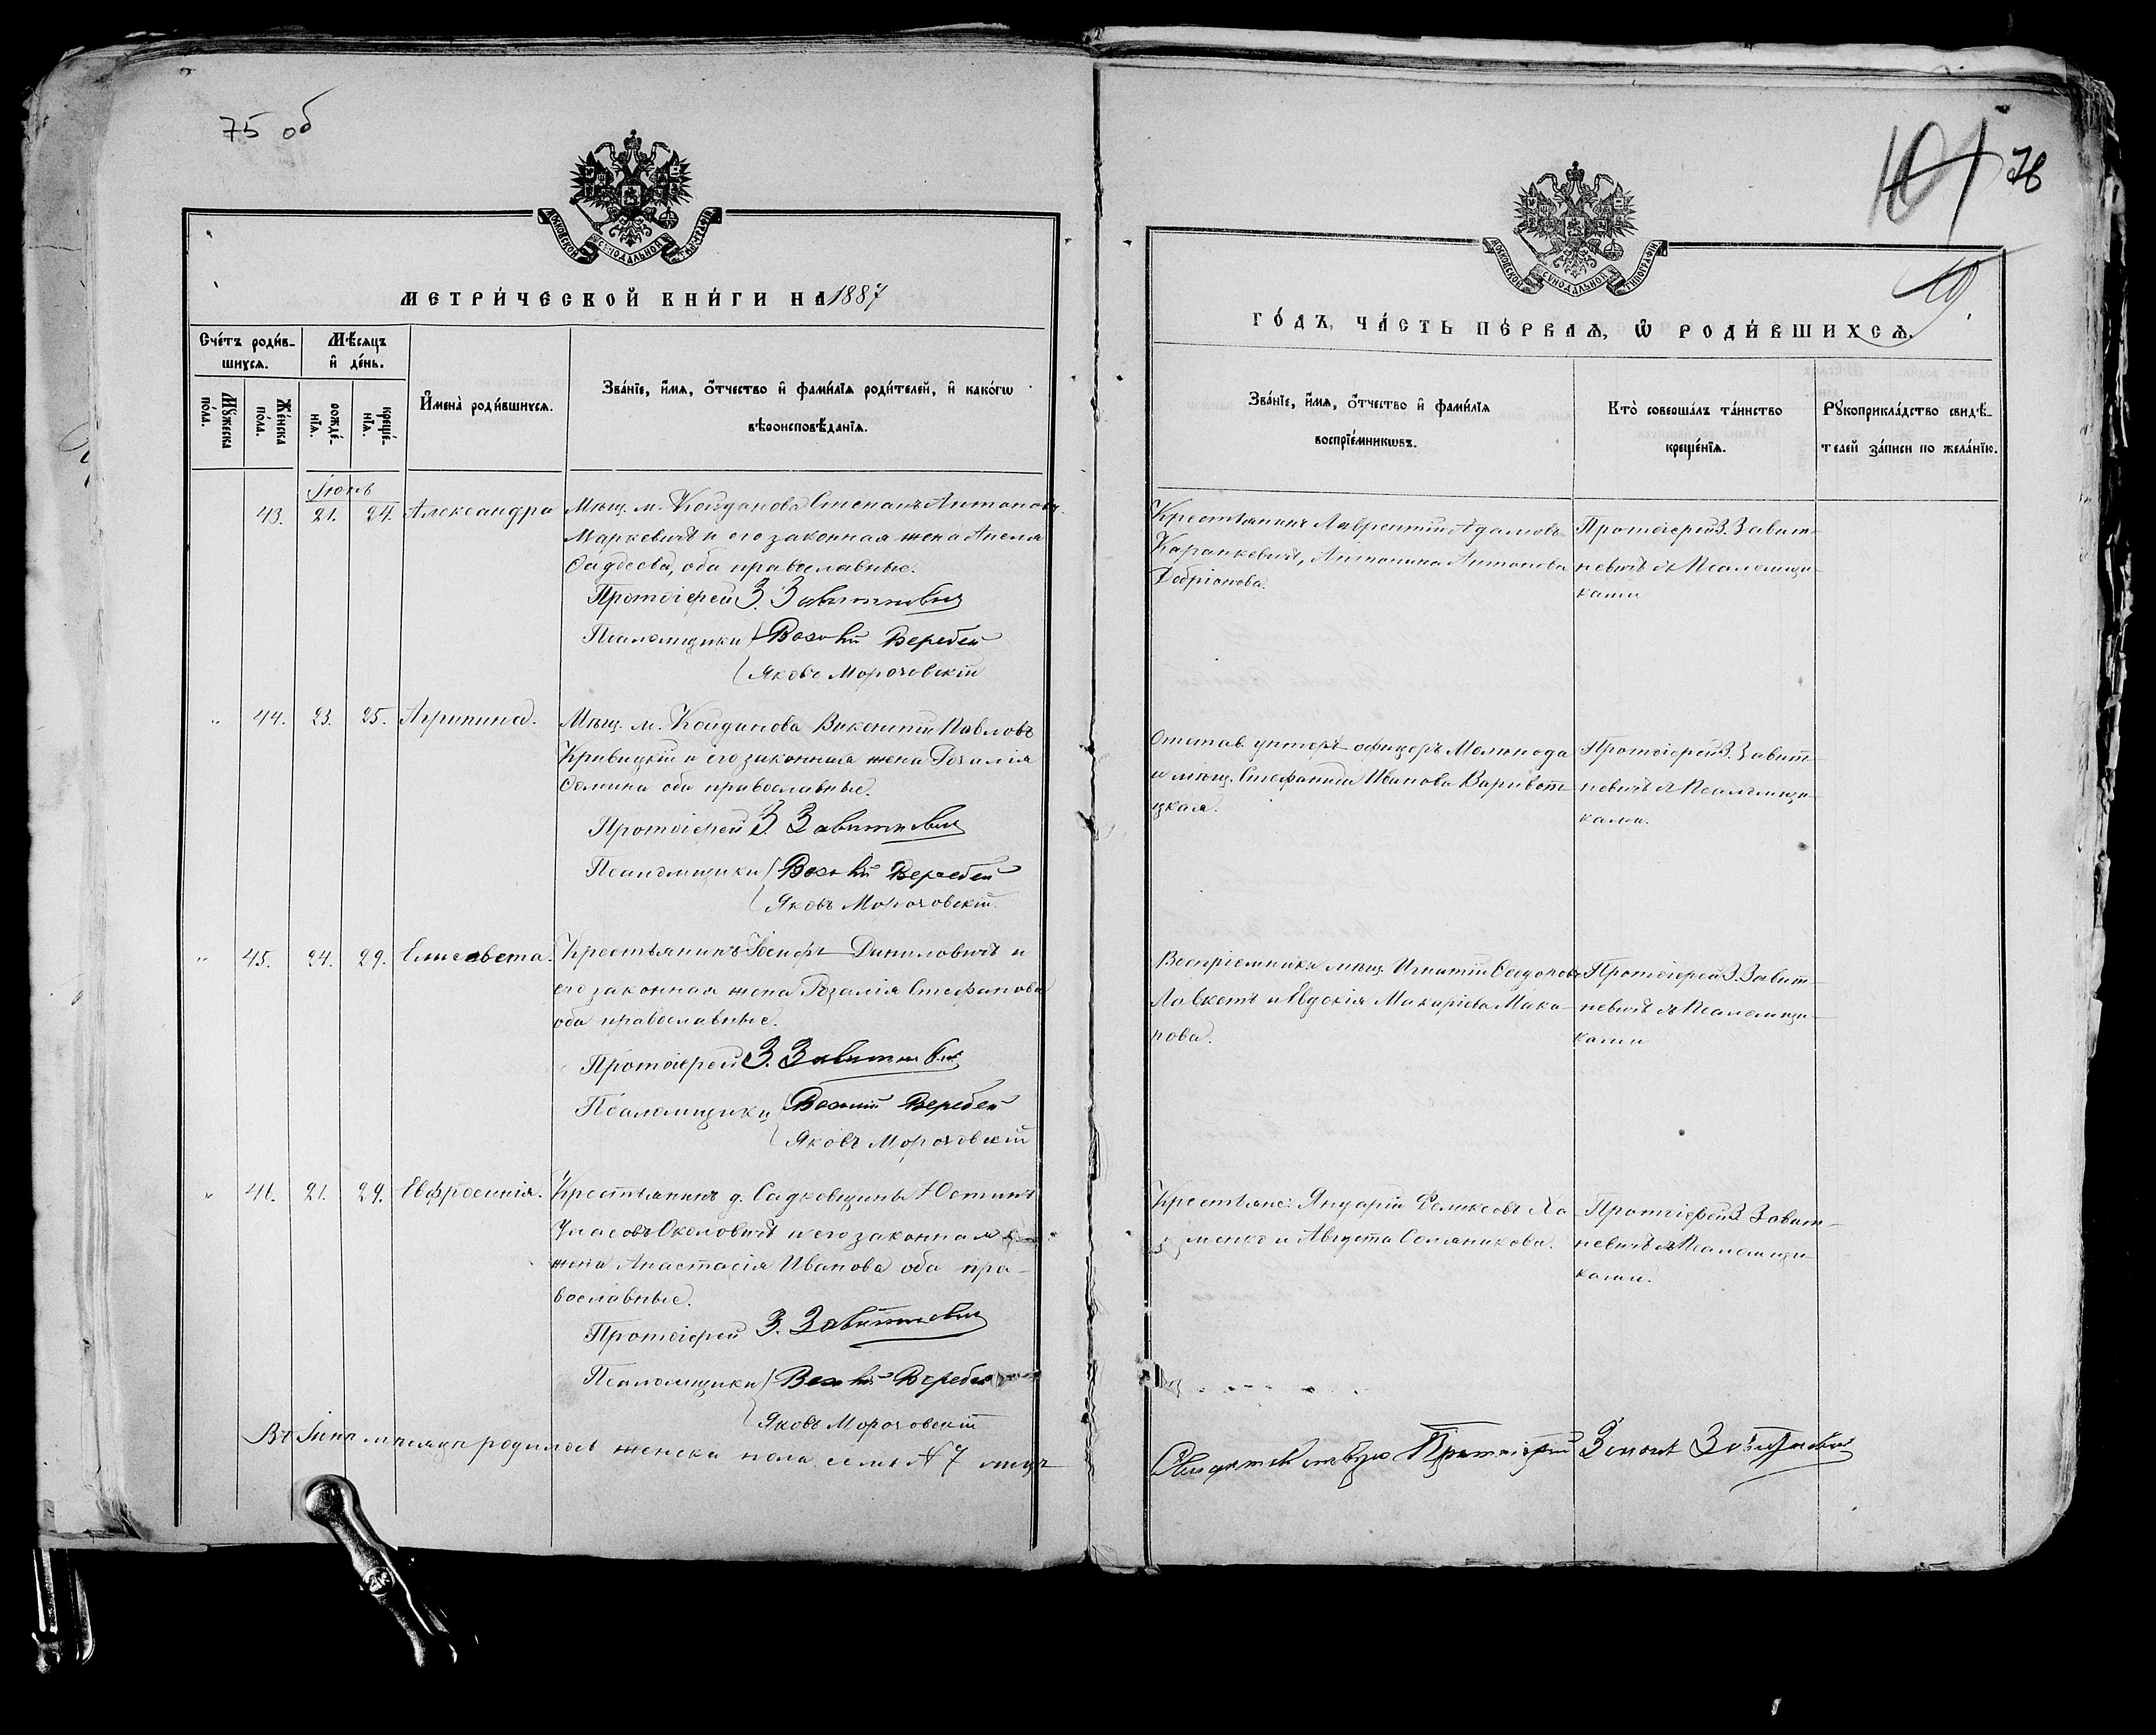 75 об
МОСКОВСКОЙ СУНОДАЛЬНОЙ ТИПОГРАФІИ
МЕТРИ́ЧЕСКОЙ КНИ́ГИ НА 1887
Сче́тъ роди́в-
шихсѧ.
Мѣ́сѧцъ
и҆ де́нь.
Мꙋ́жеска
по́ла.
Же́нска
по́ла.
рожде́-
нїѧ.
креще́-
нїѧ.
И҆мена̀ роди́вшихсѧ.
Зва́нїе, и҆́мѧ, о҆́тчество и҆ фами́лїѧ роди́телей, и҆ како́гѡ
вѣроисповѣ́данїѧ.
Іюнь
43. 21. 24. Александра
Мѣщ. м. Койданова Степанъ Антоновъ
Маркевичъ и его законная жена Анеля
Фаддеева, оба православные.
Протоіерей З. Завитневич
Псаломщики Веребей
Яковъ Морочовскій
" 44. 23. 25. Агрипина.
Мѣщ. м. Койданова Викентій Павловъ
Кривицкій и его законная жена Розалія
Фомина оба православные.
Протоіерей З. Завитневич
Псаломщики Веребей
Яковъ Морочовскій.
" 45. 24. 29. Елисавета.
Крестьянинъ Іосифъ Даниловичъ и
его законная жена Розалія Стефанова
оба православные.
Протоіерей З. Завитневич
Псаломщики Веребей
Яковъ Морочовскій
" 46. 21. 29. Евфросинія.
Крестьянинъ д. Садковщины Юстинъ
Власовъ Околовичъ и его законная
жена Анастасія Иванова оба пра-
вославные.
Протоіерей З. Завитневич
Псаломщики Веребей
Яковъ Морочовскій
Въ Іюнѣ мѣсяцѣ родилось женска пола семь № 7 лицъ
101 76
МОСКОВСКОЙ СУНОДАЛЬНОЙ ТИПОГРАФІИ
ГО́ДЪ, ЧА́СТЬ ПЕ́РВАѦ, Ѡ҆ РОДИ́ВШИХСѦ.
Зва́нїе, и҆́мѧ, о҆́тчество и҆ фами́лїѧ
воспрїе́мникѡвъ.
Кто̀ соверша́лъ та́инство
креще́нїѧ.
Рꙋкоприкла́дство свидѣ́-
телей за́писи по жела́нїю.
Крестьянинъ Лаврентій Адамовъ
Каранкевичъ, Антонина Антонова
Фабріонова.
Протоіерей З. Завит-
невичъ съ Псаломщи-
ками
Отстав. унтеръ-офицеръ
и мѣщ. Стефанида Иванова
цкая.
Протоіерей З. Завит-
невичъ съ Псаломщи-
ками.
Воспріемники мѣщ. Игнатій Феодоровъ
и Евдокія Макаріева Мака-
рова.
Протоіерей З. Завит-
невичъ съ Псаломщи-
ками
Крестьяне: Януарій Феликсовъ Хо
менко и Августа Семяникова.
Протоіерей З. Завит-
невичъ съ Псаломщи-
ками.
Свидетельствую Протоіерей Зинонъ Завитневич